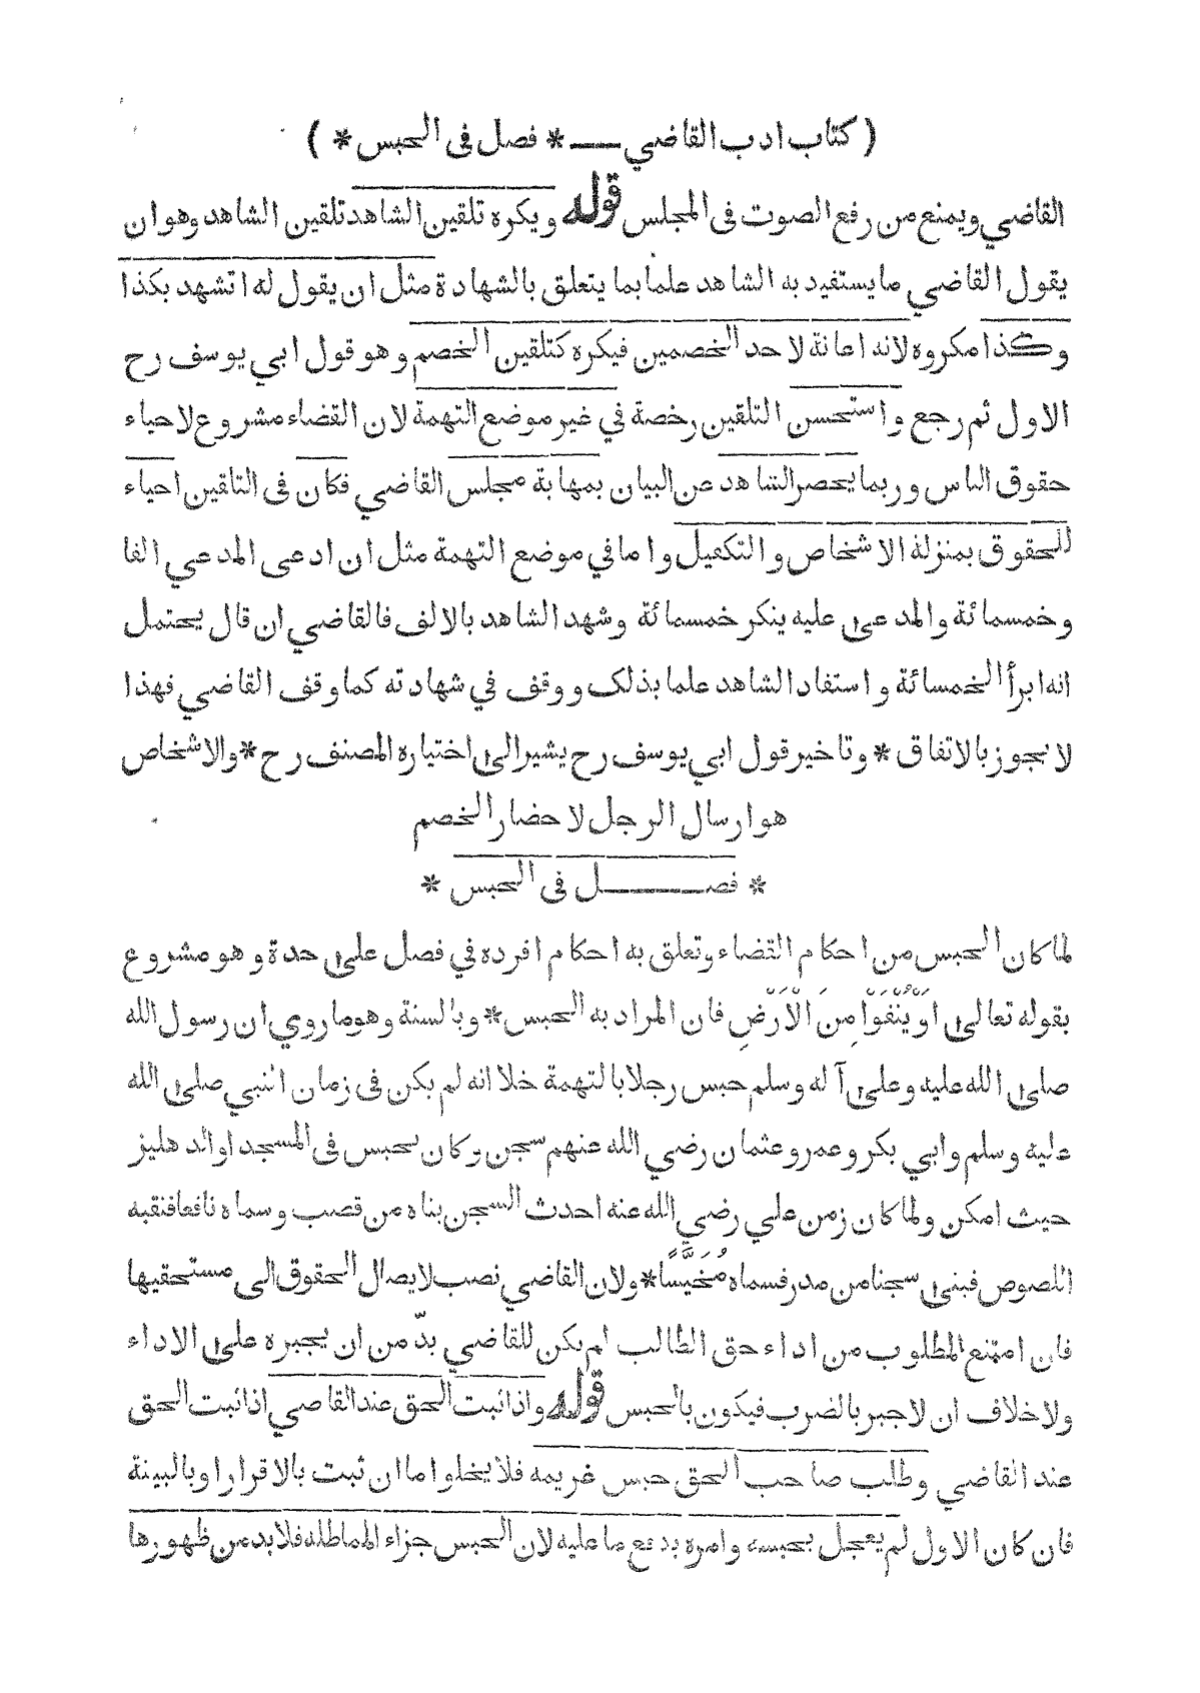 ( كتاب ادب القاضي — * فصل فى الحبس * )
القاضي ويمنع من رفع الصوت فى المجلس قوله ويكره تلقين الشاهد تلقين الشاهد وهو ان
يقول القاضي ما يستفيد به الشاهد علما بما يتعلق بالشهادة مثل ان يقول له اتشهد بكذا
وكذا مكروه لانه اعانة لاحد الخصمين فيكره كتلقين الخصم وهو قول ابي يوسف رح
الاول ثم رجع واستحسن التلقين رخصة في غير موضع التهمة لان القضاء مشروع لاحياء
حقوق الناس وربما يحصر الشاهد عن البيان بمهابة مجلس القاضي فكان فى التلقين احياء
للحقوق بمنزلة الاشخاص والتكفيل واما في موضع التهمة مثل ان ادعى المدعي الفا
وخمسمائة والمدعى عليه ينكر خمسمائة وشهد الشاهد بالالف فالقاضي ان قال يحتمل
انه ابرأ الخمسائة واستفاد الشاهد علما بذلك ووقف في شهادته كما وقف القاضي فهذا
لا يجوز بالاتفاق * وتاخير قول ابي يوسف رح يشير الى اختياره المصنف رح * والاشخاص
هو ارسال الرجل لاحضار الخصم
* فصل فى الحبس *
لما كان الحبس من احكام القضاء وتعلق به احكام افرده في فصل على حدة وهو مشروع
بقوله تعالى اَوْ يُنْفَوْا مِنَ الْاَرْضِ فان المراد به الحبس * وبالسنة وهو ما روي ان رسول الله
صلى الله عليه وعلى آله وسلم حبس رجلا بالتهمة خلا انه لم يكن فى زمان النبي صلى الله
عليه وسلم وابي بكر وعمر وعثمان رضي الله عنهم سجن وكان يحبس فى المسجد او الدهليز
حيث امكن ولما كان زمن علي رضي الله عنه احدث السجن بناه من قصب وسماه نافعا فنقبه
اللصوص فبنى سجنا من مدر فسماه مُخَيَّسًا * ولان القاضي نصب لايصال الحقوق الى مستحقيها
فان امتنع المطلوب من اداء حق الطالب لم يكن للقاضي بدّ من ان يجبره على الاداء
ولا خلاف ان لا جبر بالضرب فيكون بالحبس قوله واذا ثبت الحق عند القاضي اذا ثبت الحق
عند القاضي وطلب صاحب الحق حبس غريمه فلا يخلو اما ان ثبت بالاقرار او بالبينة
فان كان الاول لم يعجل بحبسه وامره بدفع ما عليه لان الحبس جزاء المماطله فلا بد من ظهورها